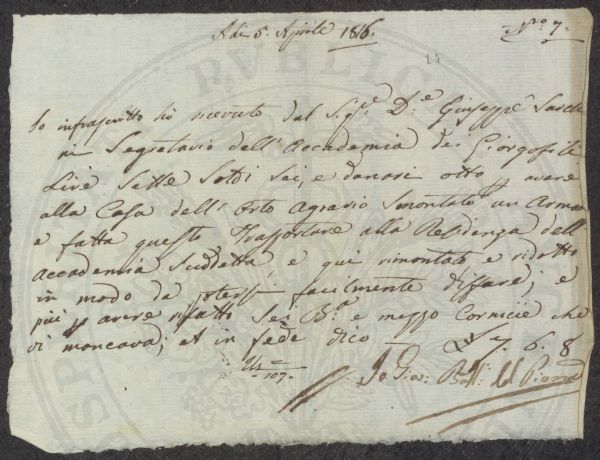 Adì 5. Aprile 1816.
N.o 7.
14
Io infrascritto ho ricevuto dal Sig.e D.e Giuseppe Sarchi
ni Segretario dell'Accademia dei Giorgofili
Lire Sette Soldi Sei, e danari otto p avere
alla Casa dell'Orto Agrario Smontato un Arma
e fatta questo Trasportare alla Residenza dell'
Accademia Suddetta, e qui rimontato e ridotto
in modo da potersi facilmente disfare; e
più p avere rifatto Sei B.a e mezzo Cornicie che
vi mancava; et in fede dico — £ 7. 6. 8
107.
Io Gio: Batt: del Pianta